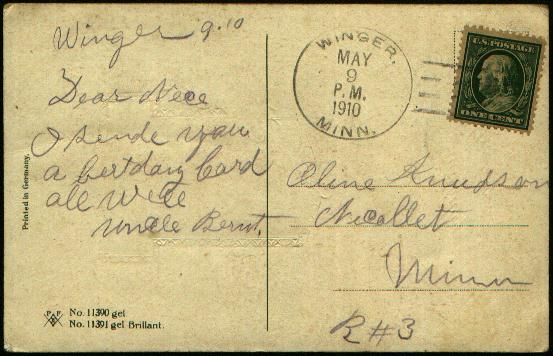 Winger 9.10
Dear Nece
I sende you
a bertday Card
all Well
uncle Bernt.
Printed in Germany.
P F B
No. 11390 gel
No. 11391 gel Brillant.
WINGER,
MAY
9
P.M.
1910
MINN.
U.S. POSTAGE
ONE CENT
Oline Knudson
Nicollet
Minn
R#3